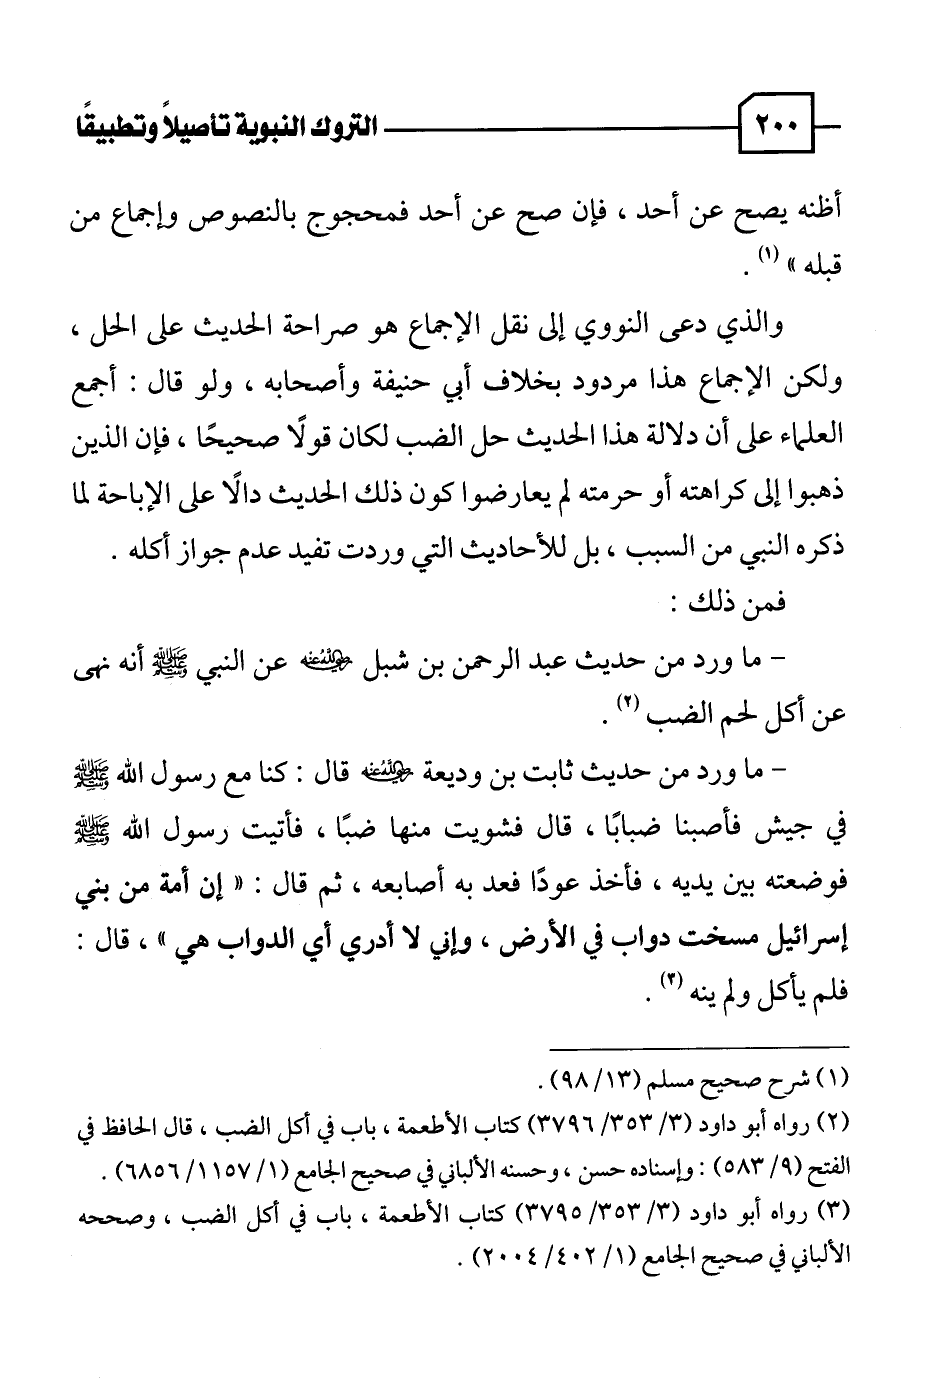 ٢٠٠ التروك النبوية تأصيلاً وتطبيقًا
أظنه يصح عن أحد ، فإن صح عن أحد فمحجوج بالنصوص وإجماع من
قبله » (١) .
والذي دعى النووي إلى نقل الإجماع هو صراحة الحديث على الحل ،
ولكن الإجماع هذا مردود بخلاف أبي حنيفة وأصحابه ، ولو قال : أجمع
العلماء على أن دلالة هذا الحديث حل الضب لكان قولًا صحيحًا ، فإن الذين
ذهبوا إلى كراهته أو حرمته لم يعارضوا كون ذلك الحديث دالًا على الإباحة لما
ذكره النبي من السبب ، بل للأحاديث التي وردت تفيد عدم جواز أكله .
فمن ذلك :
– ما ورد من حديث عبد الرحمن بن شبل رضي الله عنه عن النبي ﷺ أنه نهى
عن أكل لحم الضب (٢) .
– ما ورد من حديث ثابت بن وديعة رضي الله عنه قال : كنا مع رسول الله ﷺ
في جيش فأصبنا ضبابًا ، قال فشويت منها ضبًا ، فأتيت رسول الله ﷺ
فوضعته بين يديه ، فأخذ عودًا فعد به أصابعه ، ثم قال : « إن أمة من بني
إسرائيل مسخت دواب في الأرض ، وإني لا أدري أي الدواب هي » ، قال :
فلم يأكل ولم ينه (٣) .
(١) شرح صحيح مسلم (١٣/ ٩٨) .
(٢) رواه أبو داود (٣/ ٣٥٣/ ٣٧٩٦) كتاب الأطعمة ، باب في أكل الضب ، قال الحافظ في
الفتح (٩/ ٥٨٣) : وإسناده حسن ، وحسنه الألباني في صحيح الجامع (١/ ١١٥٧/ ٦٨٥٦) .
(٣) رواه أبو داود (٣/ ٣٥٣/ ٣٧٩٥) كتاب الأطعمة ، باب في أكل الضب ، وصححه
الألباني في صحيح الجامع (١/ ٤٠٢/ ٢٠٠٤) .